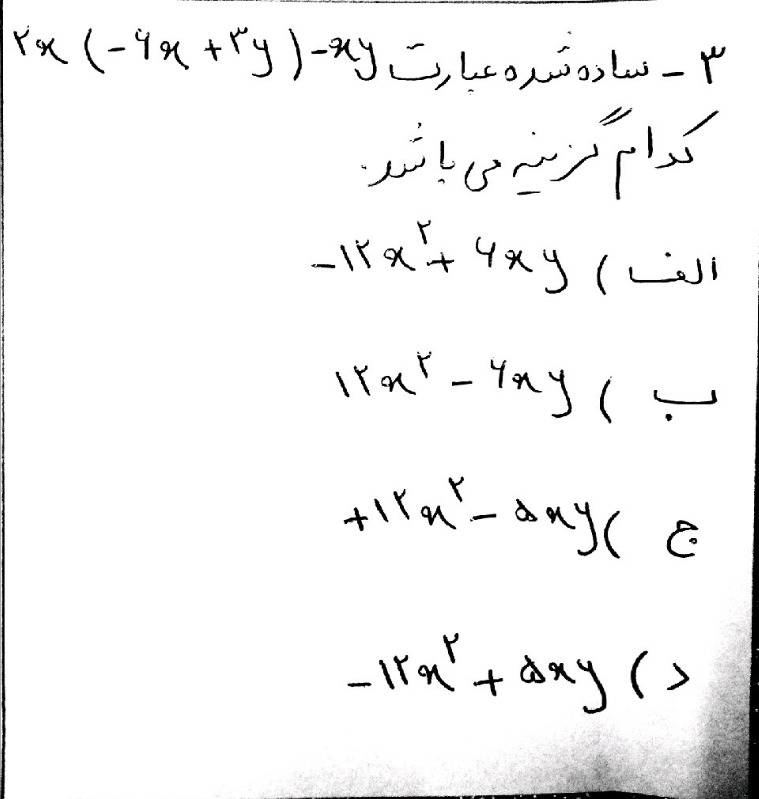 ۳ - ساده شده عبارت ۲x (-۶x + ۳y) - xy
کدام گزینه می باشد.
الف) -۱۲x² + ۶xy
ب) ۱۲x² - ۶xy
ج) +۱۲x² - ۵xy
د) -۱۲x² + ۵xy